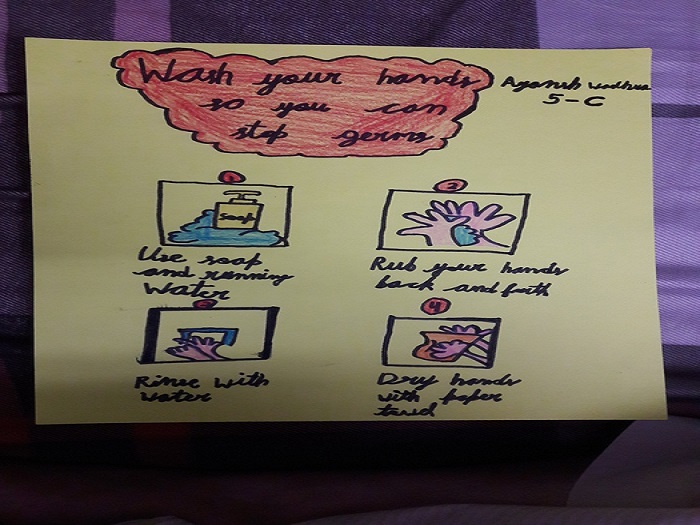 Wash your hands
so you can
stop germs
Ayansh Wadhwa
5-C
1
Soap
Use soap
and running
water
2
Rub your hands
back and forth
3
Rinse with
water
4
Dry hands
with paper
towel